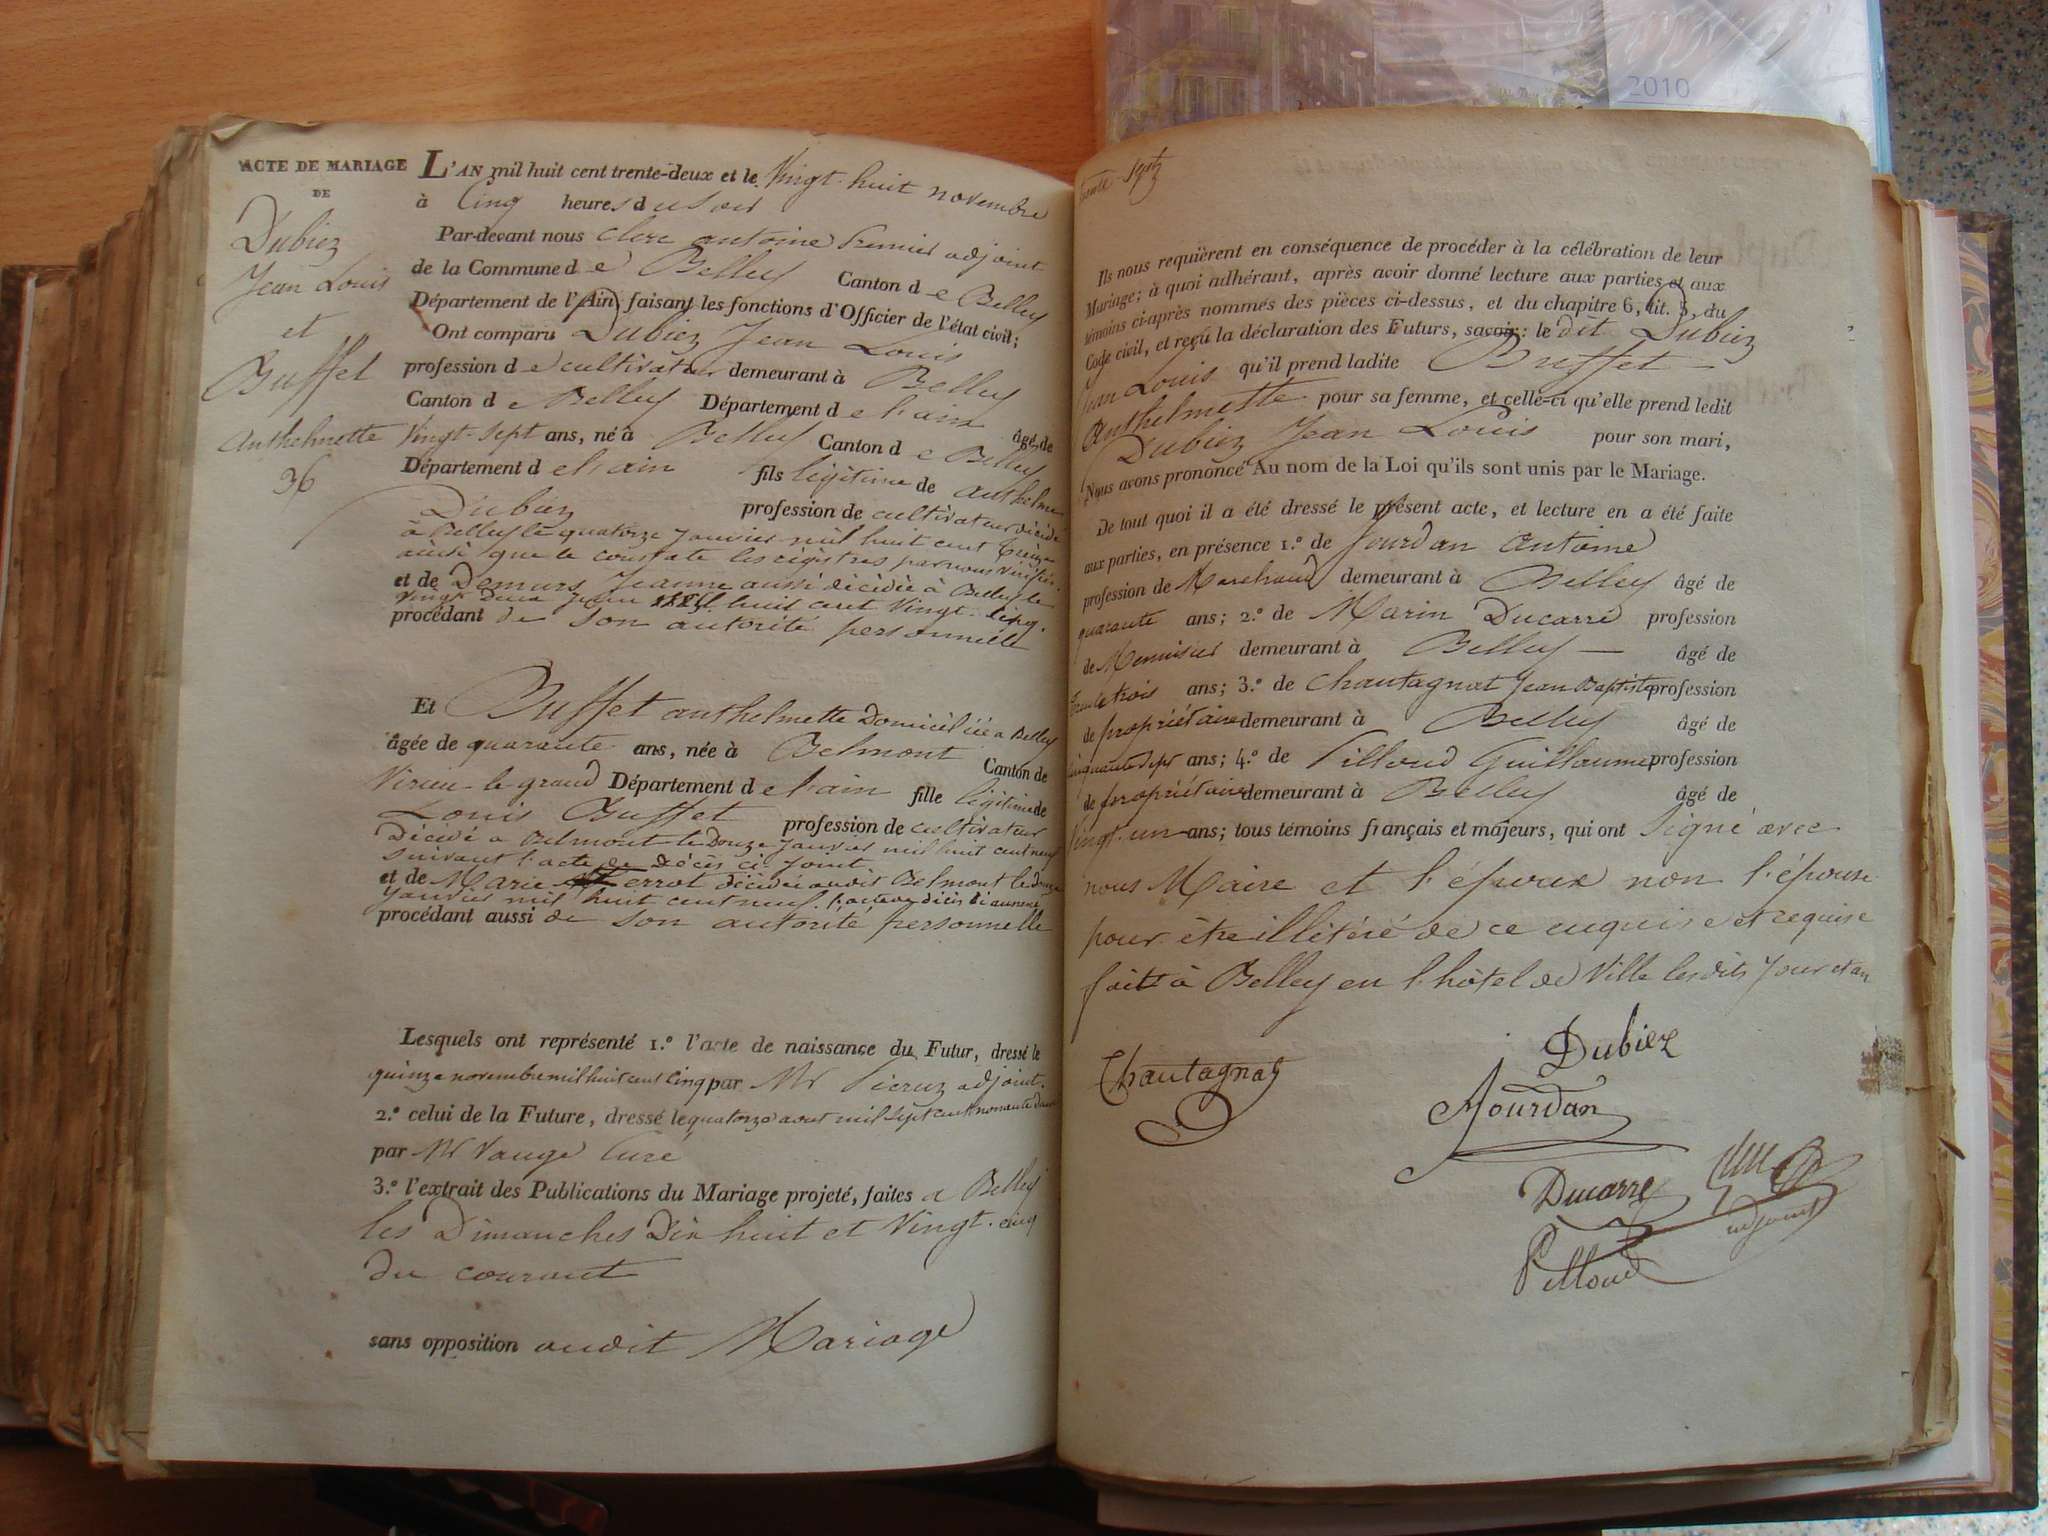 ACTE DE MARIAGE
DE
Dubiez
Jean Louis
et
Buffet
Anthelmette
36
L'AN mil huit cent trente-deux et le Vingt-huit novembre
à Cinq heures du soir
Par-devant nous Clerc antoine Premier adjoint
de la Commune de Belley Canton de Belley
Département de l'Ain, faisant les fonctions d'Officier de l'état civil;
Ont comparu Dubiez Jean Louis
profession de cultivateur demeurant à Belley
Canton de Belley Département de l'ain âgé de
Vingt-Sept ans, né à Belley Canton de Belley
Département de l'ain fils légitime de anthelme
Dubiez profession de cultivateur décédé
à Belley le quatorze Janvier mil huit cent treize
ainsi que le constate les régistres par nous Vérifiés
et de Demurs Jeanne aussi décédée à Belley le
Vingt deux Juin mil huit cent Vingt-cinq.
procédant de son autorité personnelle
Et Buffet anthelmette Domiciliée a Belley
âgée de quarante ans, née à Belmont Canton de
Virieu-le grand Département de l'ain fille légitime de
Louis Buffet profession de cultivateur
décédé à Belmont le Douze Janvier mil huit cent neuf
suivant l'acte de décès ci Joint
et de Marie errot décédée audit Belmont le douze
Janvier mil huit cent neuf. l'acte de décès ci annexé
procédant aussi de son autorité personnelle
Lesquels ont représenté 1.º l'acte de naissance du Futur, dressé le
quinze novembre mil huit cent Cinq par Mr Picruz adjoint.
2.º celui de la Future, dressé le quatorze aout mil sept cent nonante deux
par Mr Vauge Curé
3.º l'extrait des Publications du Mariage projeté, faites a Belley
les Dimanches Dix huit et Vingt-cinq
du courant
sans opposition audit Mariage
trente-Sept
Ils nous requièrent en conséquence de procéder à la célébration de leur
Mariage; à quoi adhérant, après avoir donné lecture aux parties et aux
témoins ci-après nommés des pièces ci-dessus, et du chapitre 6, tit. 5, du
Code civil, et reçu la déclaration des Futurs, savoir: le dit Dubiez
Jean Louis qu'il prend ladite Buffet
Anthelmette pour sa femme, et celle-ci qu'elle prend ledit
Dubiez Jean Louis pour son mari,
Nous avons prononcé Au nom de la Loi qu'ils sont unis par le Mariage.
De tout quoi il a été dressé le présent acte, et lecture en a été faite
aux parties, en présence 1.º de Jourdan Antoine
profession de Marchand demeurant à Belley âgé de
quarante ans; 2.º de Marin Ducarré profession
de Menuisier demeurant à Belley âgé de
trente trois ans; 3.º de Chautagnat Jean Baptiste profession
de propriétaire demeurant à Belley âgé de
cinquante Sept ans; 4.º de Pilloud Guillaume profession
de propriétaire demeurant à Belley âgé de
Vingt-un ans; tous témoins français et majeurs, qui ont Signé avec
nous Maire et l'époux non l'épouse
pour être illétéré de ce enquise et requise
fait à Belley en l'hôtel de Ville les dits Jour et an
Dubiez
Chautagnat
Jourdan
Ducarre
adjoint
Pilloud
2010